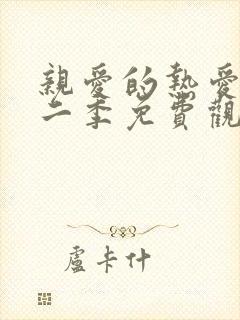 親愛的熱愛
二季免費觀
盧卡什